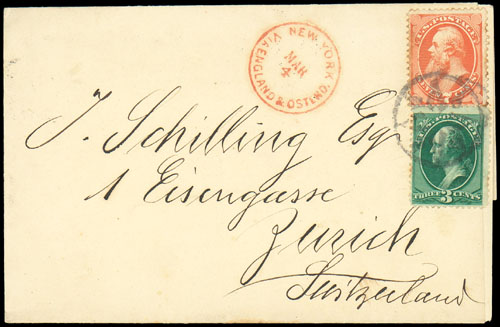 NEW-YORK
MAR
4
VIA ENGLAND & OSTEND.
U.S. POSTAGE
J. Schilling Esq
U.S. POSTAGE
THREE 3 CENTS
1 Eisengasse
Zurich
Switzerland